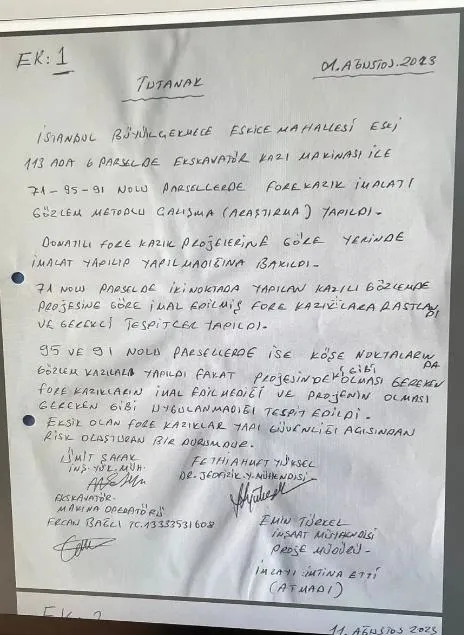 EK: 1
01. AĞUSTOS. 2023
TUTANAK
İSTANBUL BÜYÜKÇEKMECE ESKİCE MAHALLESİ ESKİ
113 ADA 6 PARSELDE EKSKAVATÖR KAZI MAKİNASI İLE
71-95-91 NOLU PARSELLERDE FORE KAZIK İMALATI
GÖZLEM METODLU ÇALIŞMA (ARAŞTIRMA) YAPILDI.
DONATILI FORE KAZIK PROJELERİNE GÖRE YERİNDE
İMALAT YAPILIP YAPILMADIĞINA BAKILDI.
71 NOLU PARSELDE İKİ NOKTADA YAPILAN KAZILI GÖZLEMDE
PROJESİNE GÖRE İMAL EDİLMİŞ FORE KAZIKLARA RASTLANDI
VE GEREKLİ TESPİTLER YAPILDI.
95 VE 91 NOLU PARSELLERDE İSE KÖŞE NOKTALARINDA
GÖZLEM KAZILARI YAPILDI FAKAT PROJESİNDEKİ GİBİ OLMASI GEREKEN
FORE KAZIKLARIN İMAL EDİLMEDİĞİ VE PROJENİN OLMASI
GEREKEN GİBİ UYGULANMADIĞI TESPİT EDİLDİ.
EKSİK OLAN FORE KAZIKLAR YAPI GÜVENLİĞİ AÇISINDAN
RİSK OLUŞTURAN BİR DURUMDUR.
ÜMİT ŞAFAK
İNŞ. YÜK. MÜH.
FETHİ AHMET YÜKSEL
DR. JEOFİZİK Y. MÜHENDİSİ
EKSKAVATÖR.
MAKİNA OPERATÖRÜ
ERCAN BAĞLI TC. 13333531608
EMİN TÜRKEL
İNŞAAT MÜHENDİSİ
PROJE MÜDÜRÜ-
İMZAYI İMTİNA ETTİ
(ATMADI)
EK: 2
11. AĞUSTOS 2023